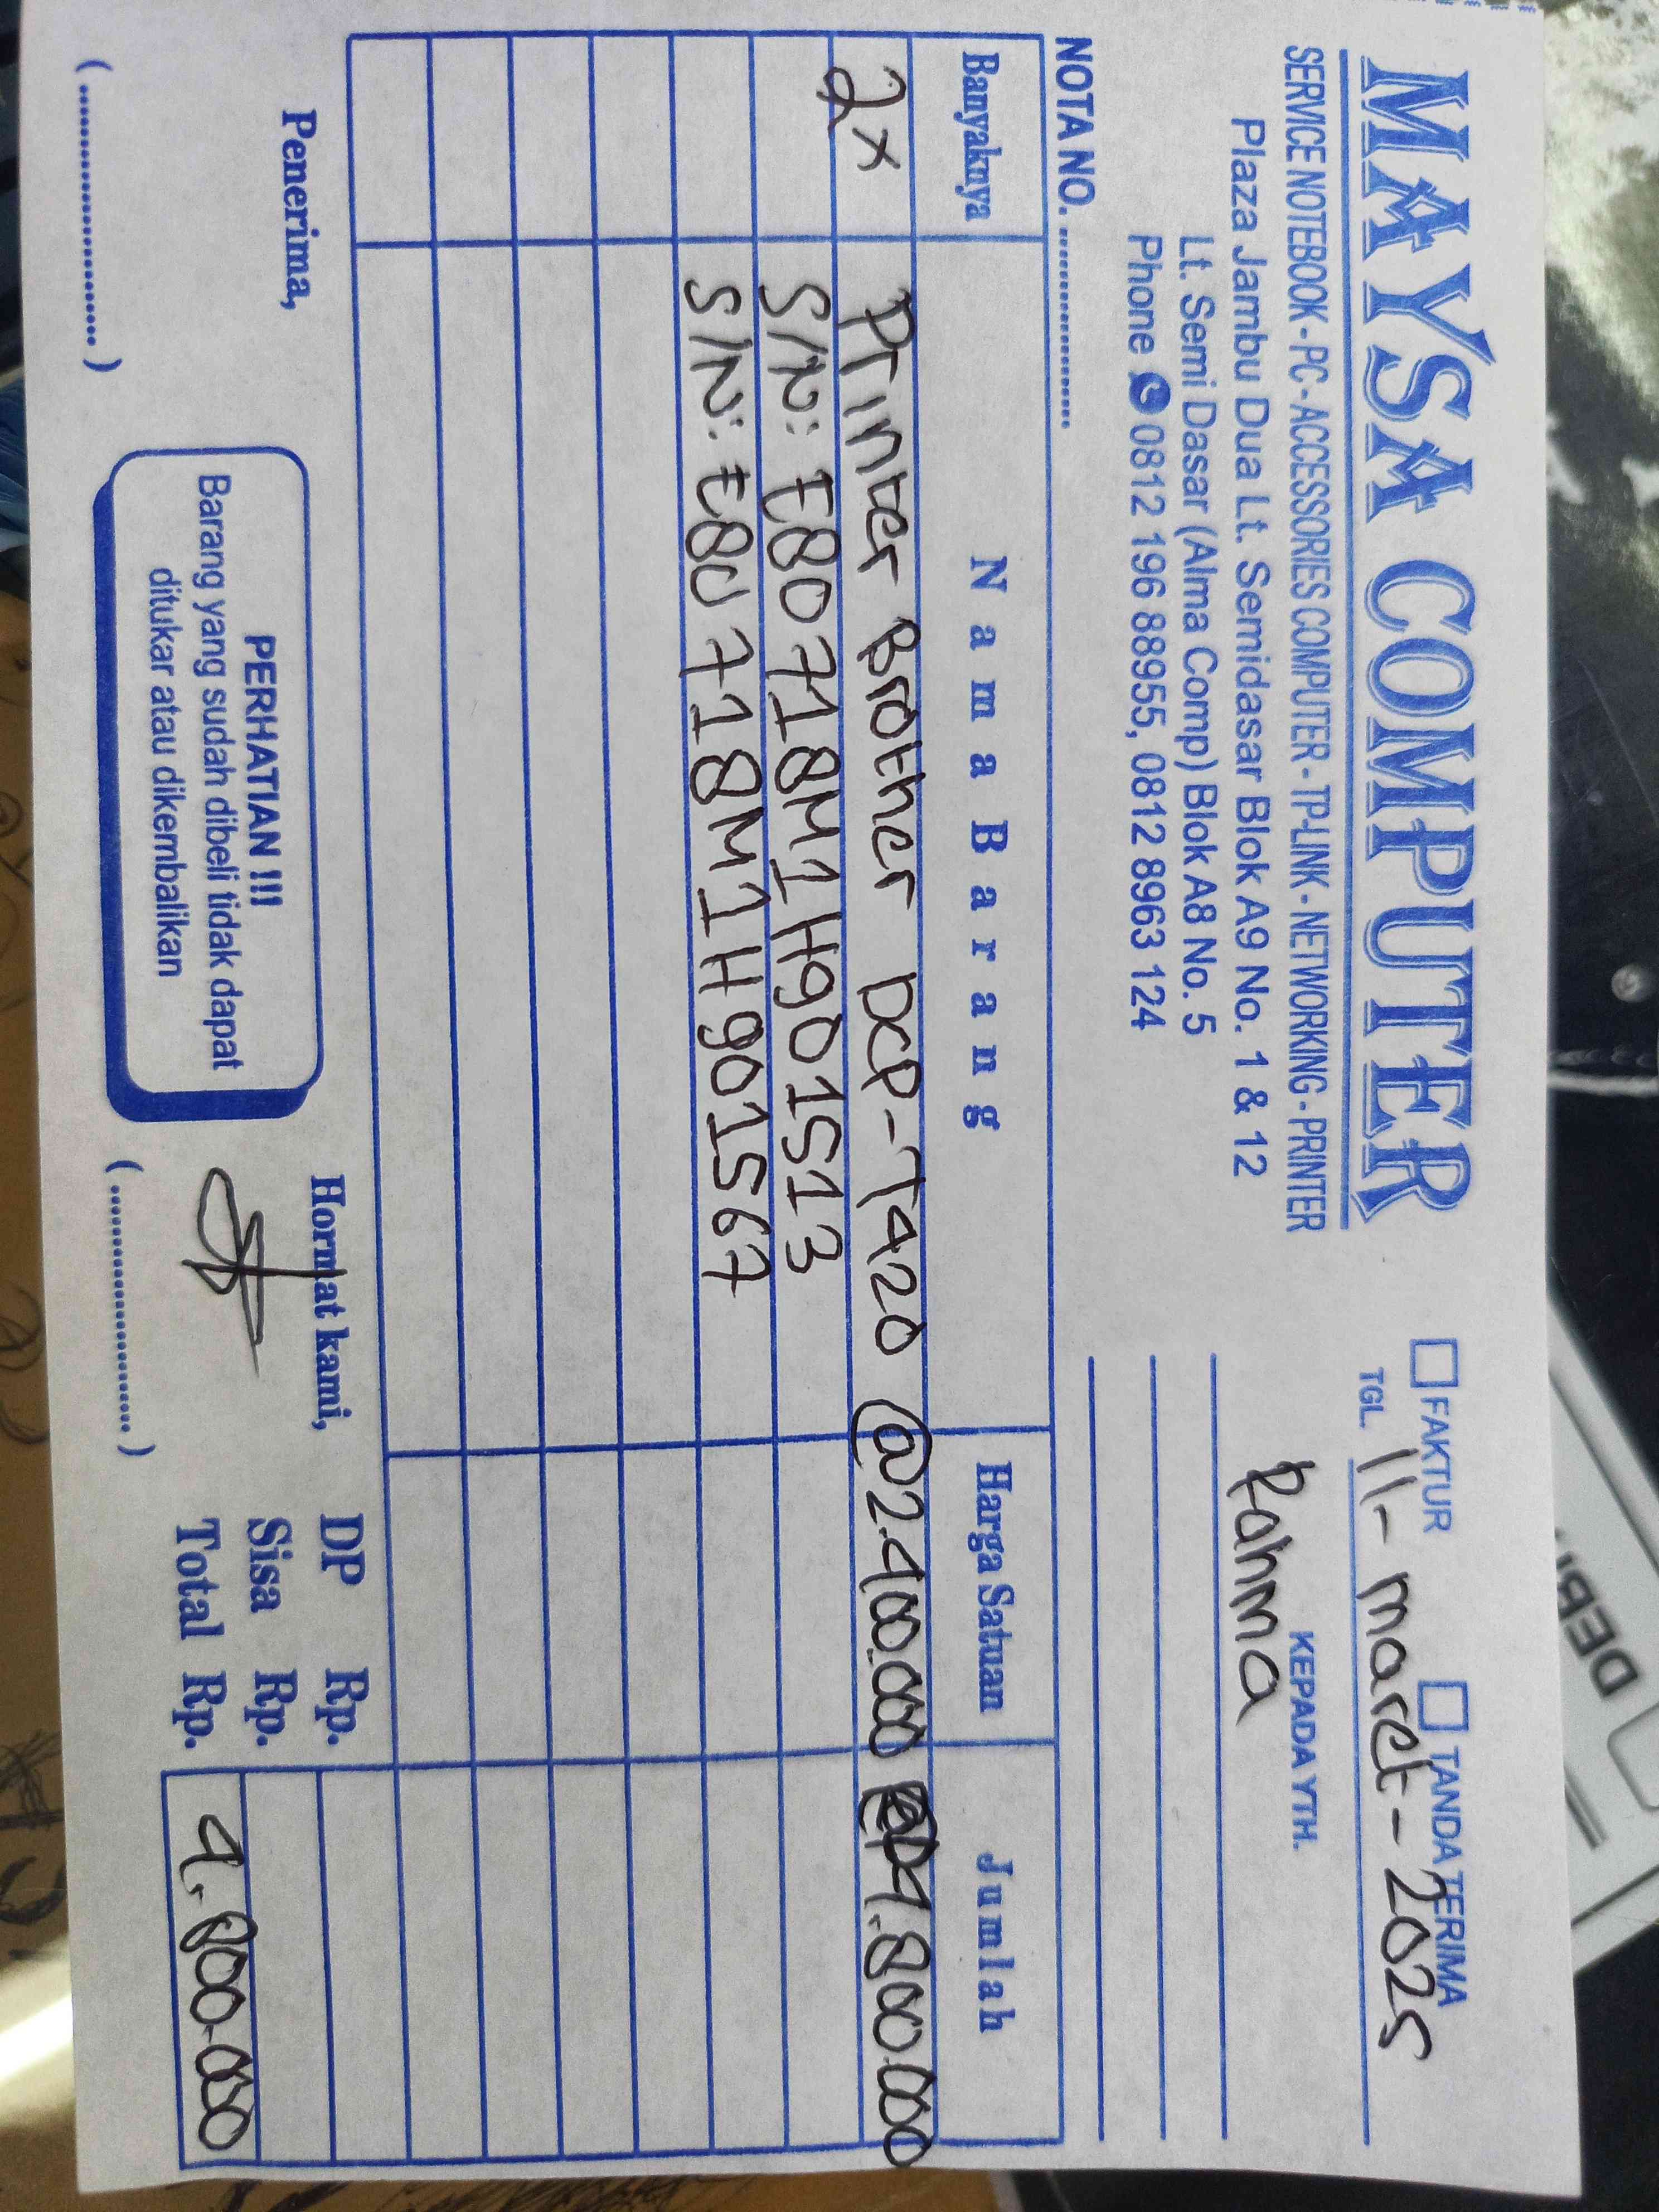 MAYSA COMPUTER
SERVICE NOTEBOOK - PC - ACCESSORIES COMPUTER - TP-LINK - NETWORKING - PRINTER
Plaza Jambu Dua Lt. Semidasar Blok A9 No. 1 & 12
Lt. Semi Dasar (Alma Comp) Blok A8 No. 5
Phone 0812 196 88955, 0812 8963 124
FAKTUR TANDA TERIMA
TGL. 11 - maret - 2025
KEPADA YTH.
Rahma
NOTA NO. ....................
Banyaknya Nama Barang Harga Satuan Jumlah
2x Printer Brother DCP-T420 @2.400.000 4.800.000
S/N: E80718M1H901513
S/N: E80718M1H901567
Penerima,
(..............................)
PERHATIAN !!!
Barang yang sudah dibeli tidak dapat
ditukar atau dikembalikan
Hormat kami,
(..............................)
DP Rp.
Sisa Rp.
Total Rp. 4.800.000
DEBI